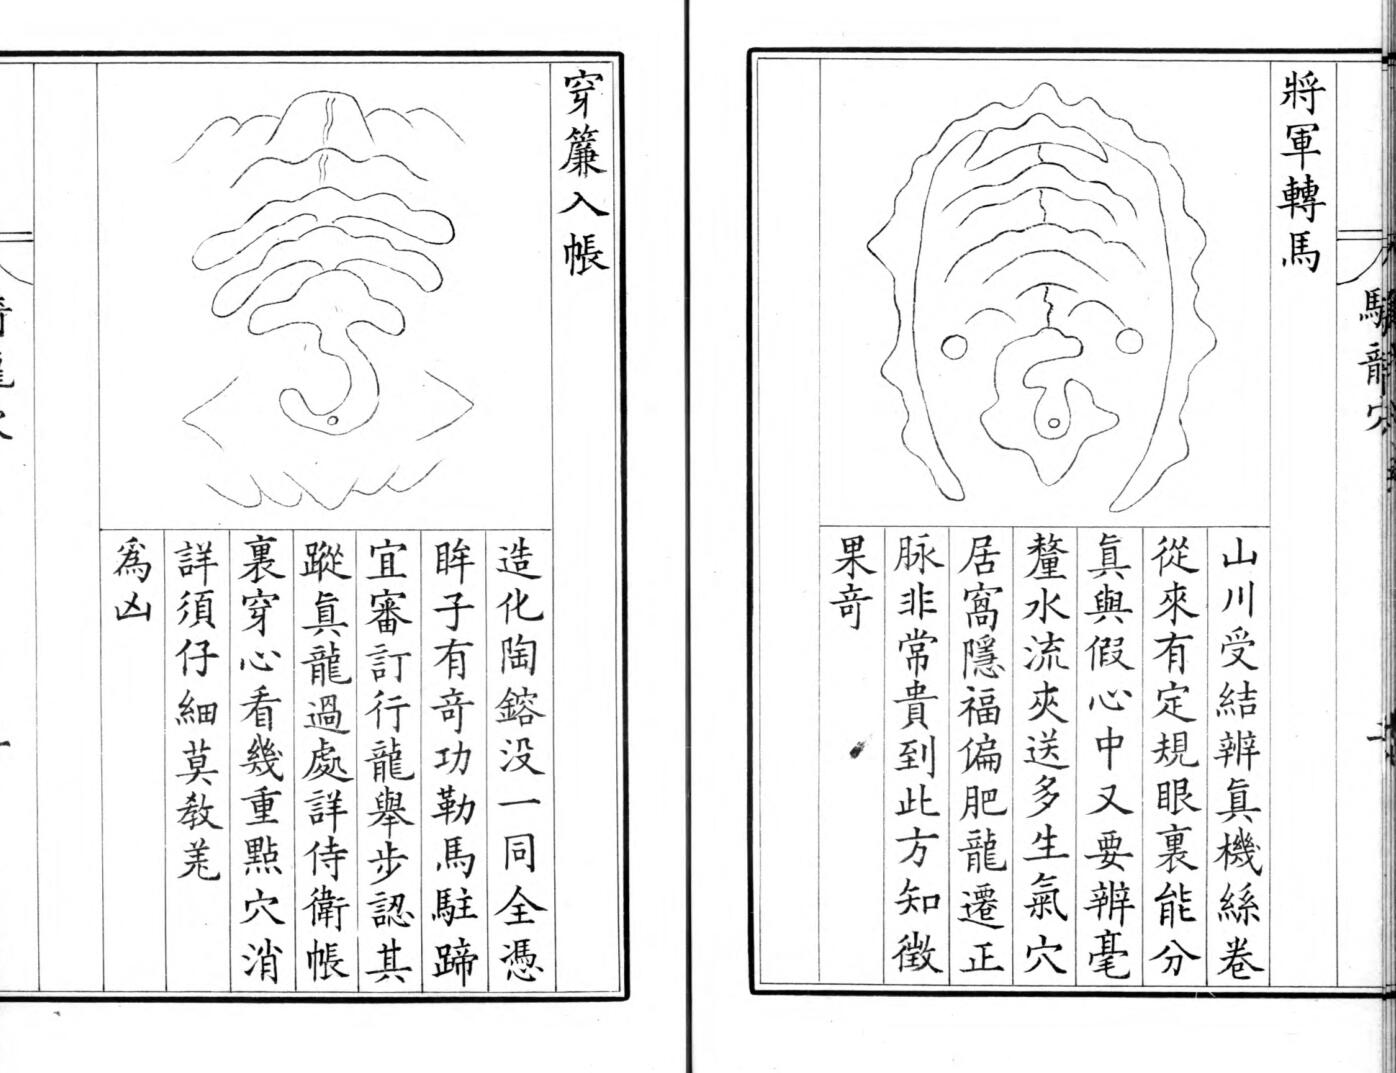 騎龍穴
將軍轉馬
山川受結辨眞機絲卷
從來有定規眼裏能分
眞與假心中又要辨毫
釐水流夾送多生氣穴
居窩隱福偏肥龍遷正
脉非常貴到此方知徵
果竒
穿簾入帳
造化陶鎔没一同全憑
眸子有竒功勒馬駐蹄
宜審訂行龍舉步認其
蹤眞龍過處詳侍衛帳
裏穿心看幾重點穴消
詳須仔細莫教羗
爲凶